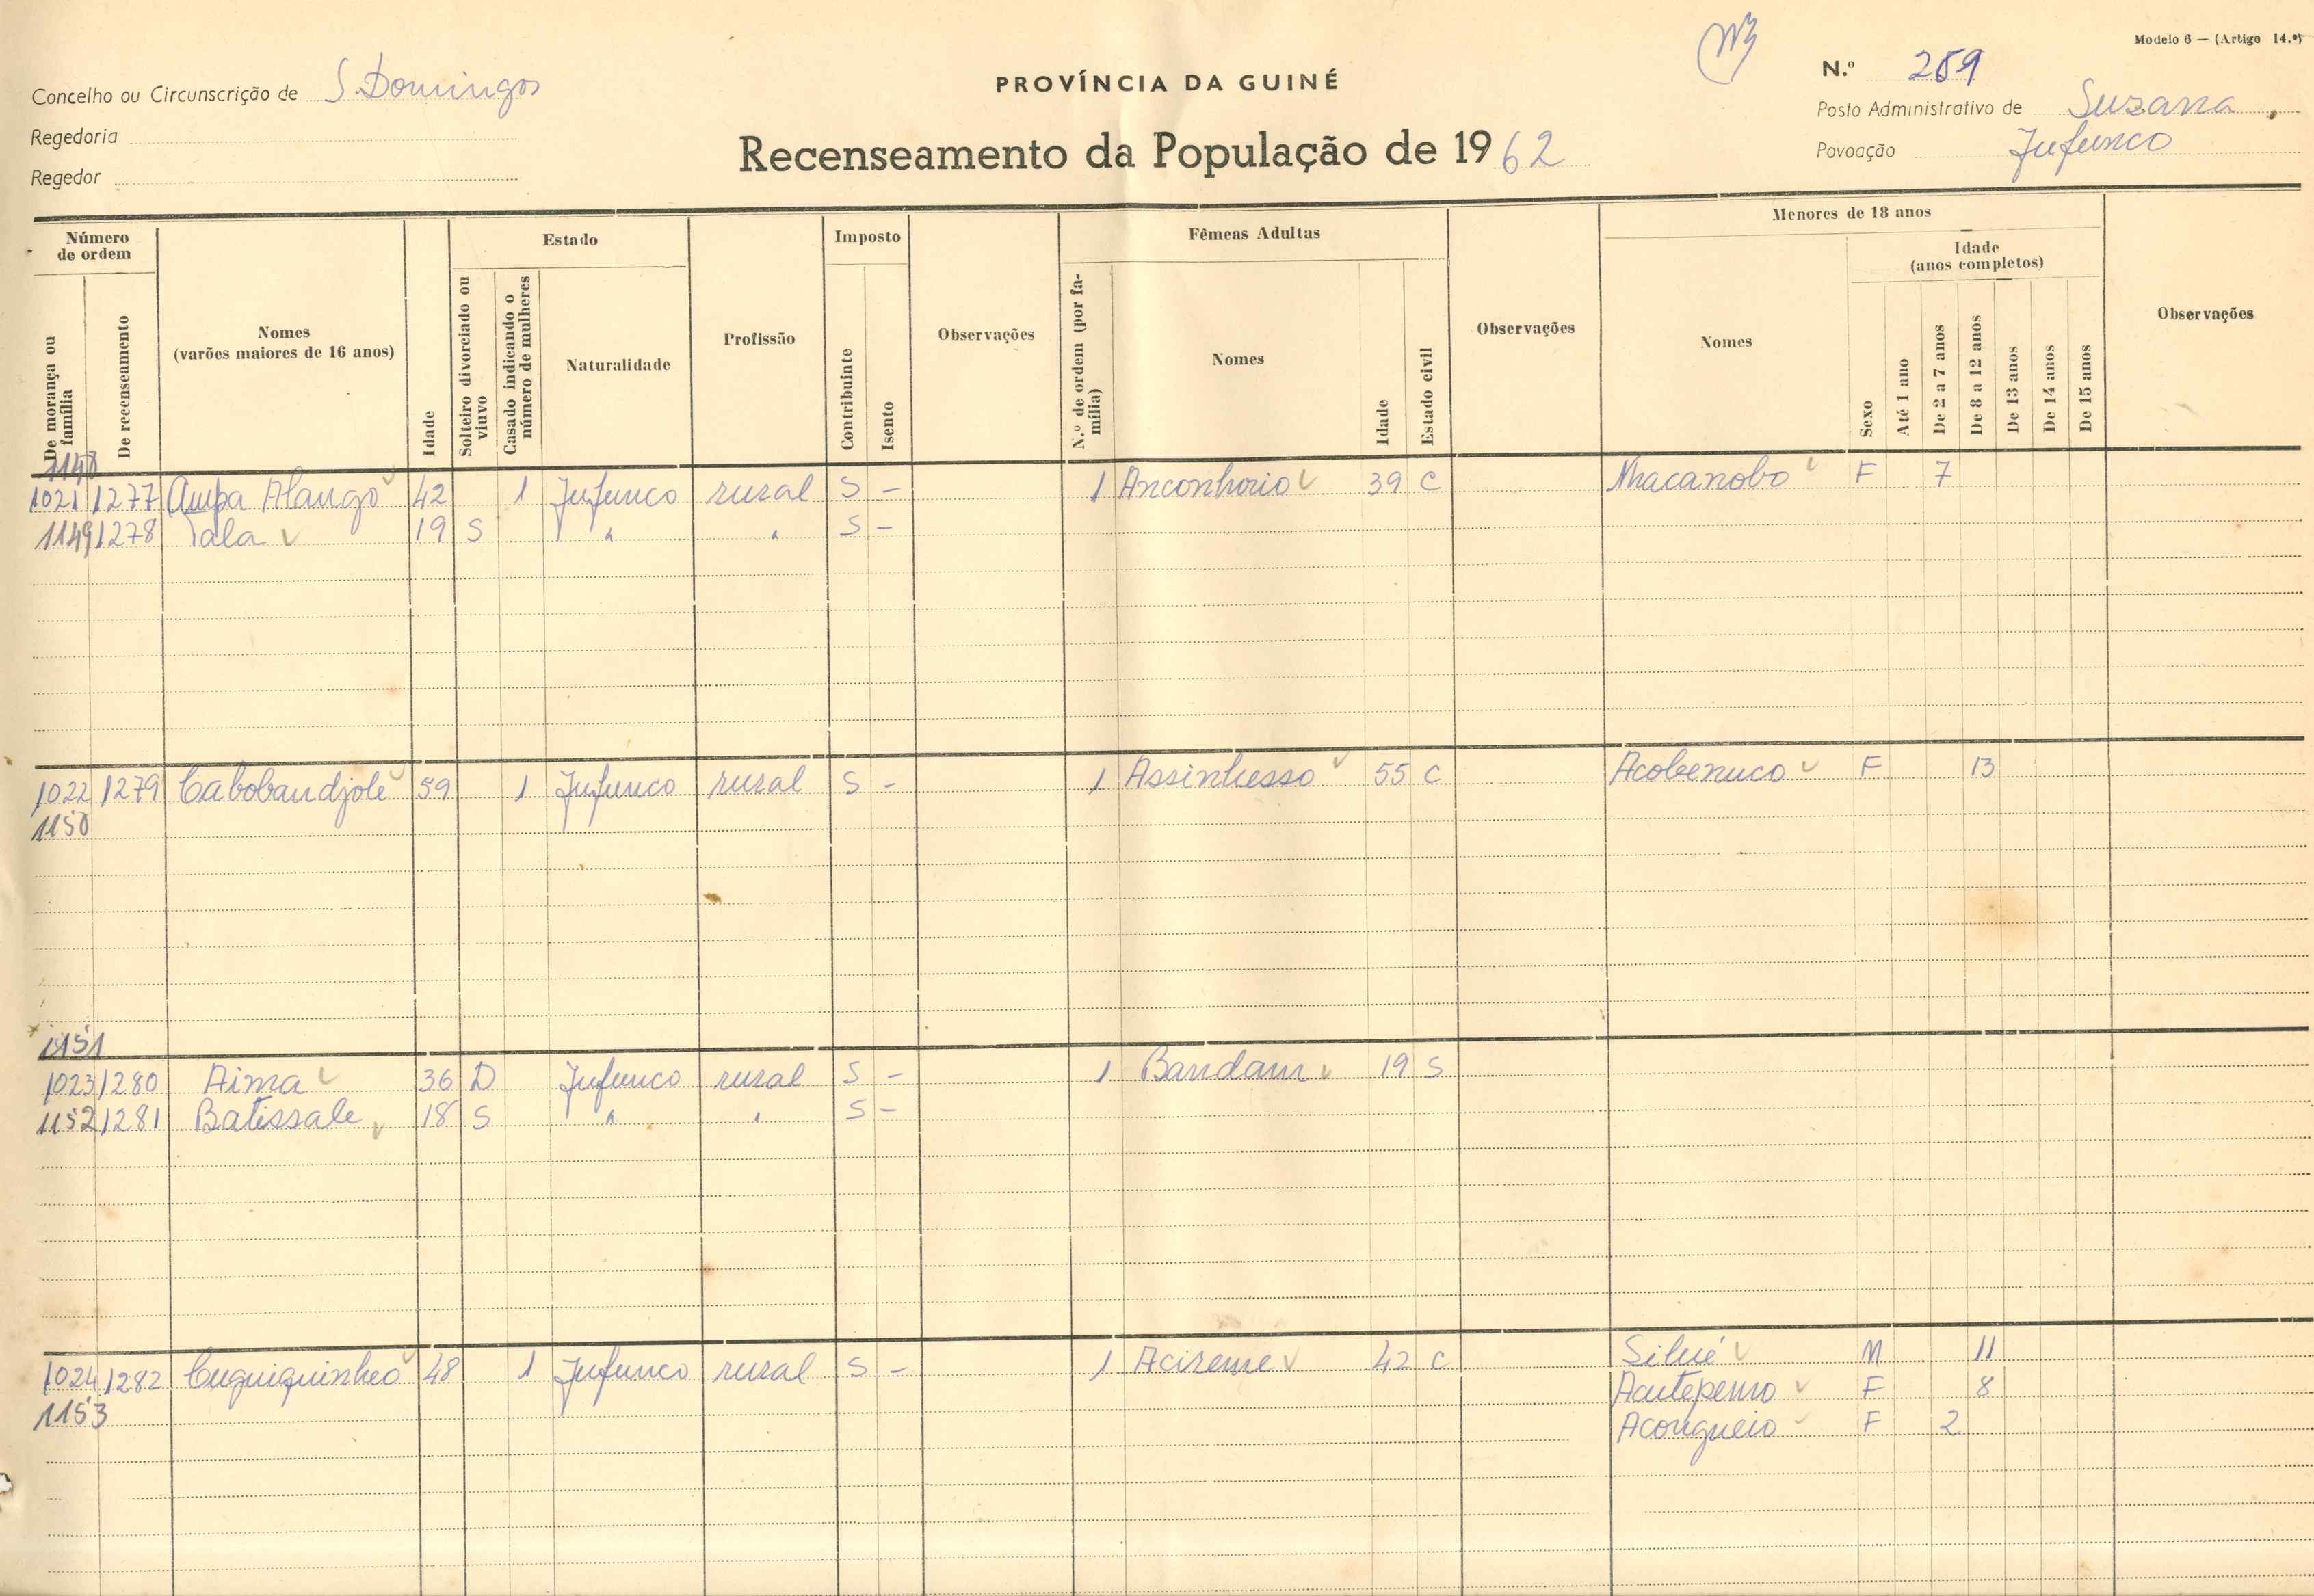 Modelo 6 — (Artigo 14.º)
PROVÍNCIA DA GUINÉ
N.º 259
Concelho ou Circunscrição de S. Domingos
Posto Administrativo de Suzana
Regedoria
Recenseamento da População de 1962
Povoação Jufunco
Regedor
Número de ordem
De morança ou família
De recenseamento
Nomes
(varões maiores de 16 anos)
Idade
Estado
Solteiro divorciado ou viuvo
Casado indicando o número de mulheres
Naturalidade
Profissão
Imposto
Contribuinte
Isento
Observações
Fêmeas Adultas
N.º de ordem (por família)
Nomes
Idade
Estado civil
Observações
Menores de 18 anos
Nomes
Sexo
Idade
(anos completos)
Até 1 ano
De 2 a 7 anos
De 8 a 12 anos
De 13 anos
De 14 anos
De 15 anos
Observações
1148
1021 1277 Ampa Alango 42 1 Jufunco rural S - 1 Anconhorio 39 C Nhacanobo F 7
1149 1278 Tala 19 S " " S -
1022 1279 Cabobandjolé 59 1 Jufunco rural S - 1 Assinhesso 55 C Acobenuco F 13
1150
1151
1023 1280 Aima 36 D Jufunco rural S - 1 Bandam 19 S
1152 1281 Batissale 18 S " " S -
1024 1282 Cuquiquinheó 48 1 Jufunco rural S - 1 Acireme 42 C Silué M 11
Acutepemo F 8
1153
Acongueio F 2